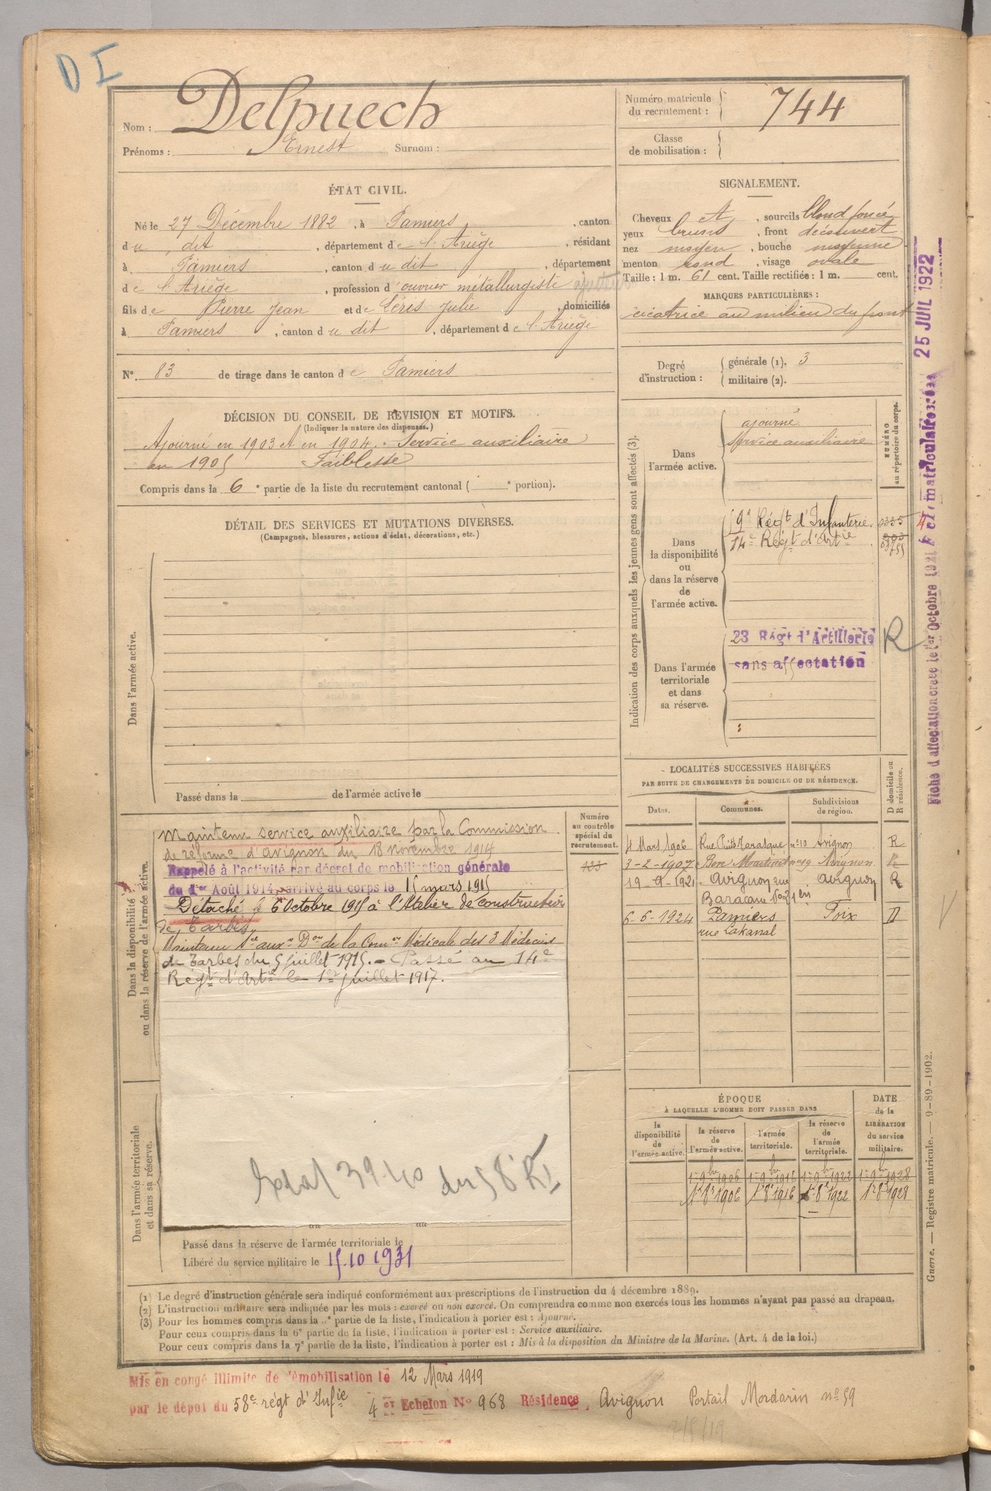 D I
Nom : Delpuech
Prénoms : Ernest Surnom :
Numéro matricule du recrutement : 744
Classe de mobilisation :
ÉTAT CIVIL.
Né le 27 Décembre 1882, à Pamiers, canton
du dit, département de l'Ariège, résidant
à Pamiers, canton du dit, département
de l'Ariège, profession d'ouvrier métallurgiste
fils de Pierre Jean et de Céris Julie, domiciliés
à Pamiers, canton du dit, département de l'Ariège
N° 83 de tirage dans le canton de Pamiers
SIGNALEMENT.
Cheveux et, sourcils blond foncé
yeux bruns, front découvert
nez moyen, bouche moyenne
menton rond, visage ovale
Taille : 1 m. 61 cent. Taille rectifiée : 1 m. cent.
MARQUES PARTICULIÈRES :
cicatrice au milieu du front
Degré d'instruction : générale (1). 3
militaire (2).
DÉCISION DU CONSEIL DE REVISION ET MOTIFS.
(Indiquer la nature des dispenses.)
Ajourné en 1903 et en 1904. Service auxiliaire
en 1905 Faiblesse
Compris dans la 6e partie de la liste du recrutement cantonal ( e portion).
DÉTAIL DES SERVICES ET MUTATIONS DIVERSES.
(Campagnes, blessures, actions d'éclat, décorations, etc.)
Dans l'armée active.
Passé dans la de l'armée active le
Indication des corps auxquels les jeunes gens sont affectés (3).
NUMÉRO au répertoire du corps.
Dans l'armée active.
ajourné
Service auxiliaire
Dans la disponibilité ou dans la réserve de l'armée active.
Régt d'Infanterie
14e Régt d'Artie
Dans l'armée territoriale et dans sa réserve.
23 Régt d'Artillerie
sans affectation
R
Fiche d'affectation créée le 1er Octobre 1921
25 JUIL 1922
LOCALITÉS SUCCESSIVES HABITÉES
PAR SUITE DE CHANGEMENTS DE DOMICILE OU DE RÉSIDENCE.
Dates. Communes. Subdivisions de région. D domicile ou R résidence.
4 Mars 1906 Avignon R
3-2-1907 Avignon R
19-9-1921 Avignon rue Avignon R
6-6-1924 Pamiers Foix D
rue Lakanal
Dans la disponibilité ou dans la réserve de l'armée active.
Numéro au contrôle spécial du recrutement.
Maintenu service auxiliaire par la Commission
de réforme d'Avignon du 18 novembre 1914
Rappelé à l'activité par décret de mobilisation générale
du 1er Août 1914, arrivé au corps le 15 mars 1915
Détaché le 6 Octobre 1915 à l'Atelier de construction
de Tarbes
Maintenu Sce auxre Don de la Comon Médicale des 3 Médecins
de Tarbes du 5 juillet 1915. - Passé au 14e
Régt d'Artie le 1er juillet 1917.
39-40 du 58e RI
Dans l'armée territoriale et dans sa réserve.
Passé dans la réserve de l'armée territoriale le
Libéré du service militaire le 15.10 1931
ÉPOQUE
À LAQUELLE L'HOMME DOIT PASSER DANS
DATE de la LIBÉRATION du service militaire.
la disponibilité de l'armée active. la réserve de l'armée active. l'armée territoriale. la réserve de l'armée territoriale.
1er 9bre 1906 1er 9bre 1916 1er 9bre 1922 1er 9bre 1928
1er 8e 1906 1er 8e 1916 1er 8e 1922 1er 8e 1928
(1) Le degré d'instruction générale sera indiqué conformément aux prescriptions de l'instruction du 4 décembre 1889.
(2) L'instruction militaire sera indiquée par les mots : exercé ou non exercé. On comprendra comme non exercés tous les hommes n'ayant pas passé au drapeau.
(3) Pour les hommes compris dans la e partie de la liste, l'indication à porter est : Ajourné.
Pour ceux compris dans la 6e partie de la liste, l'indication à porter est : Service auxiliaire.
Pour ceux compris dans la 7e partie de la liste, l'indication à porter est : Mis à la disposition du Ministre de la Marine. (Art. 4 de la loi.)
Guerre. — Registre matricule. — 9-89-1902.
Mis en congé illimité de démobilisation le 12 Mars 1919
par le dépôt du 58e régt d'Infie 4e Echelon N° 968 Résidence Avignon Portail Mordarin n° 59